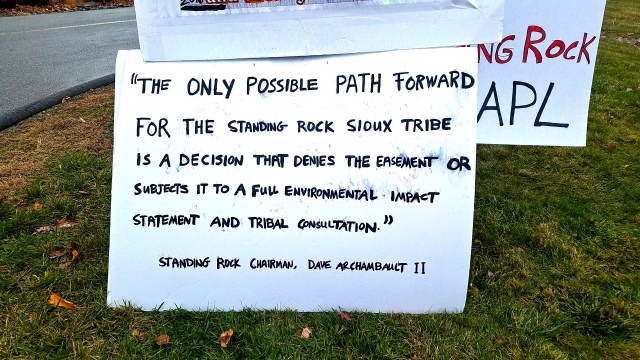 NG ROCK
APL
"THE ONLY POSSIBLE PATH FORWARD
FOR THE STANDING ROCK SIOUX TRIBE
IS A DECISION THAT DENIES THE EASEMENT OR
SUBJECTS IT TO A FULL ENVIRONMENTAL IMPACT
STATEMENT AND TRIBAL CONSULTATION."
STANDING ROCK CHAIRMAN, DAVE ARCHAMBAULT II